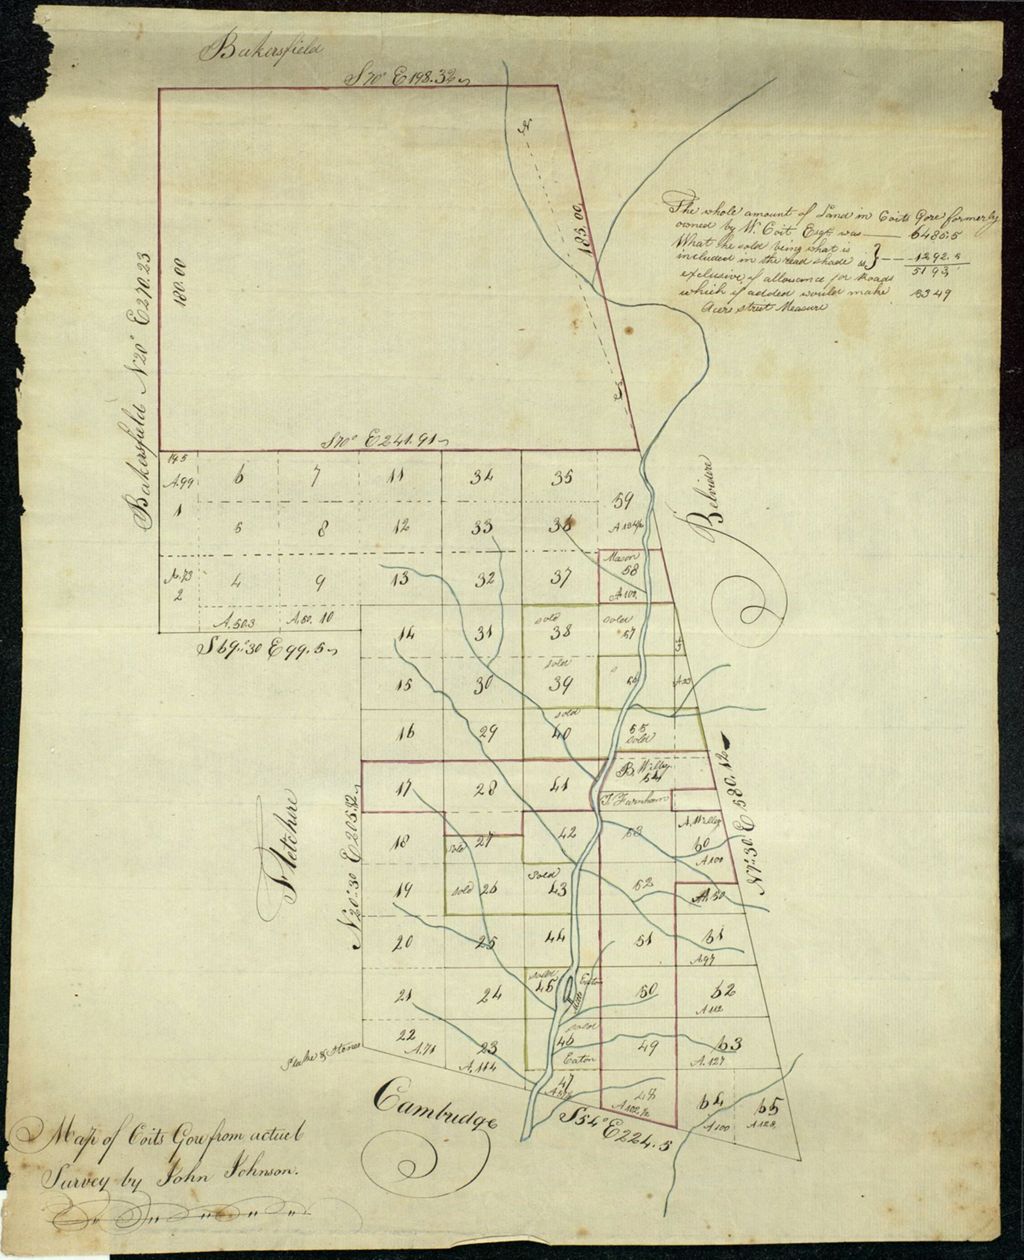 Bakersfield
S 70° E 198.32
N
183.00
180.00
Bakersfield N 20° E 270.23
The whole amount of Land in Coits Gore formerly
owned by W. Coit Esqr. was — 6485.5
What the sold being what is
included in the read shade is } — 1292.5
5193
exclusive of allowance for Roads
which if added would make 5349
Acers streit Measure
S 70° E 241.91
A.99
1
6
7
11
34
35
59
5
8
12
33
36
Belvidere
A.73
2
4
9
13
32
37
Mason
58
A.50.3
A.50. 10
S 69°.30 E 99.5
14
31
sold
38
sold
57
15
30
sold
39
56
16
29
sold
40
55
sold
17
28
41
B. Willey
54
T. Farnham
N 7°.30 E 580.12
Fletchire
N 20°.30 E 205.32
18
sold
27
42
53
A. Willey
60
A.100
19
sold 26
sold
43
52
A.50
20
25
44
51
61
A.97
21
24
sold
45
Eaton
50
62
A.112
Stake & Stones
22
A.71
23
A.114
sold
46
Eaton
49
63
A.127
47
48
64
A.100
65
A.128
Cambridge
S 54° E 224.5
Map of Coits Gore from actuel
Survey by John Johnson.